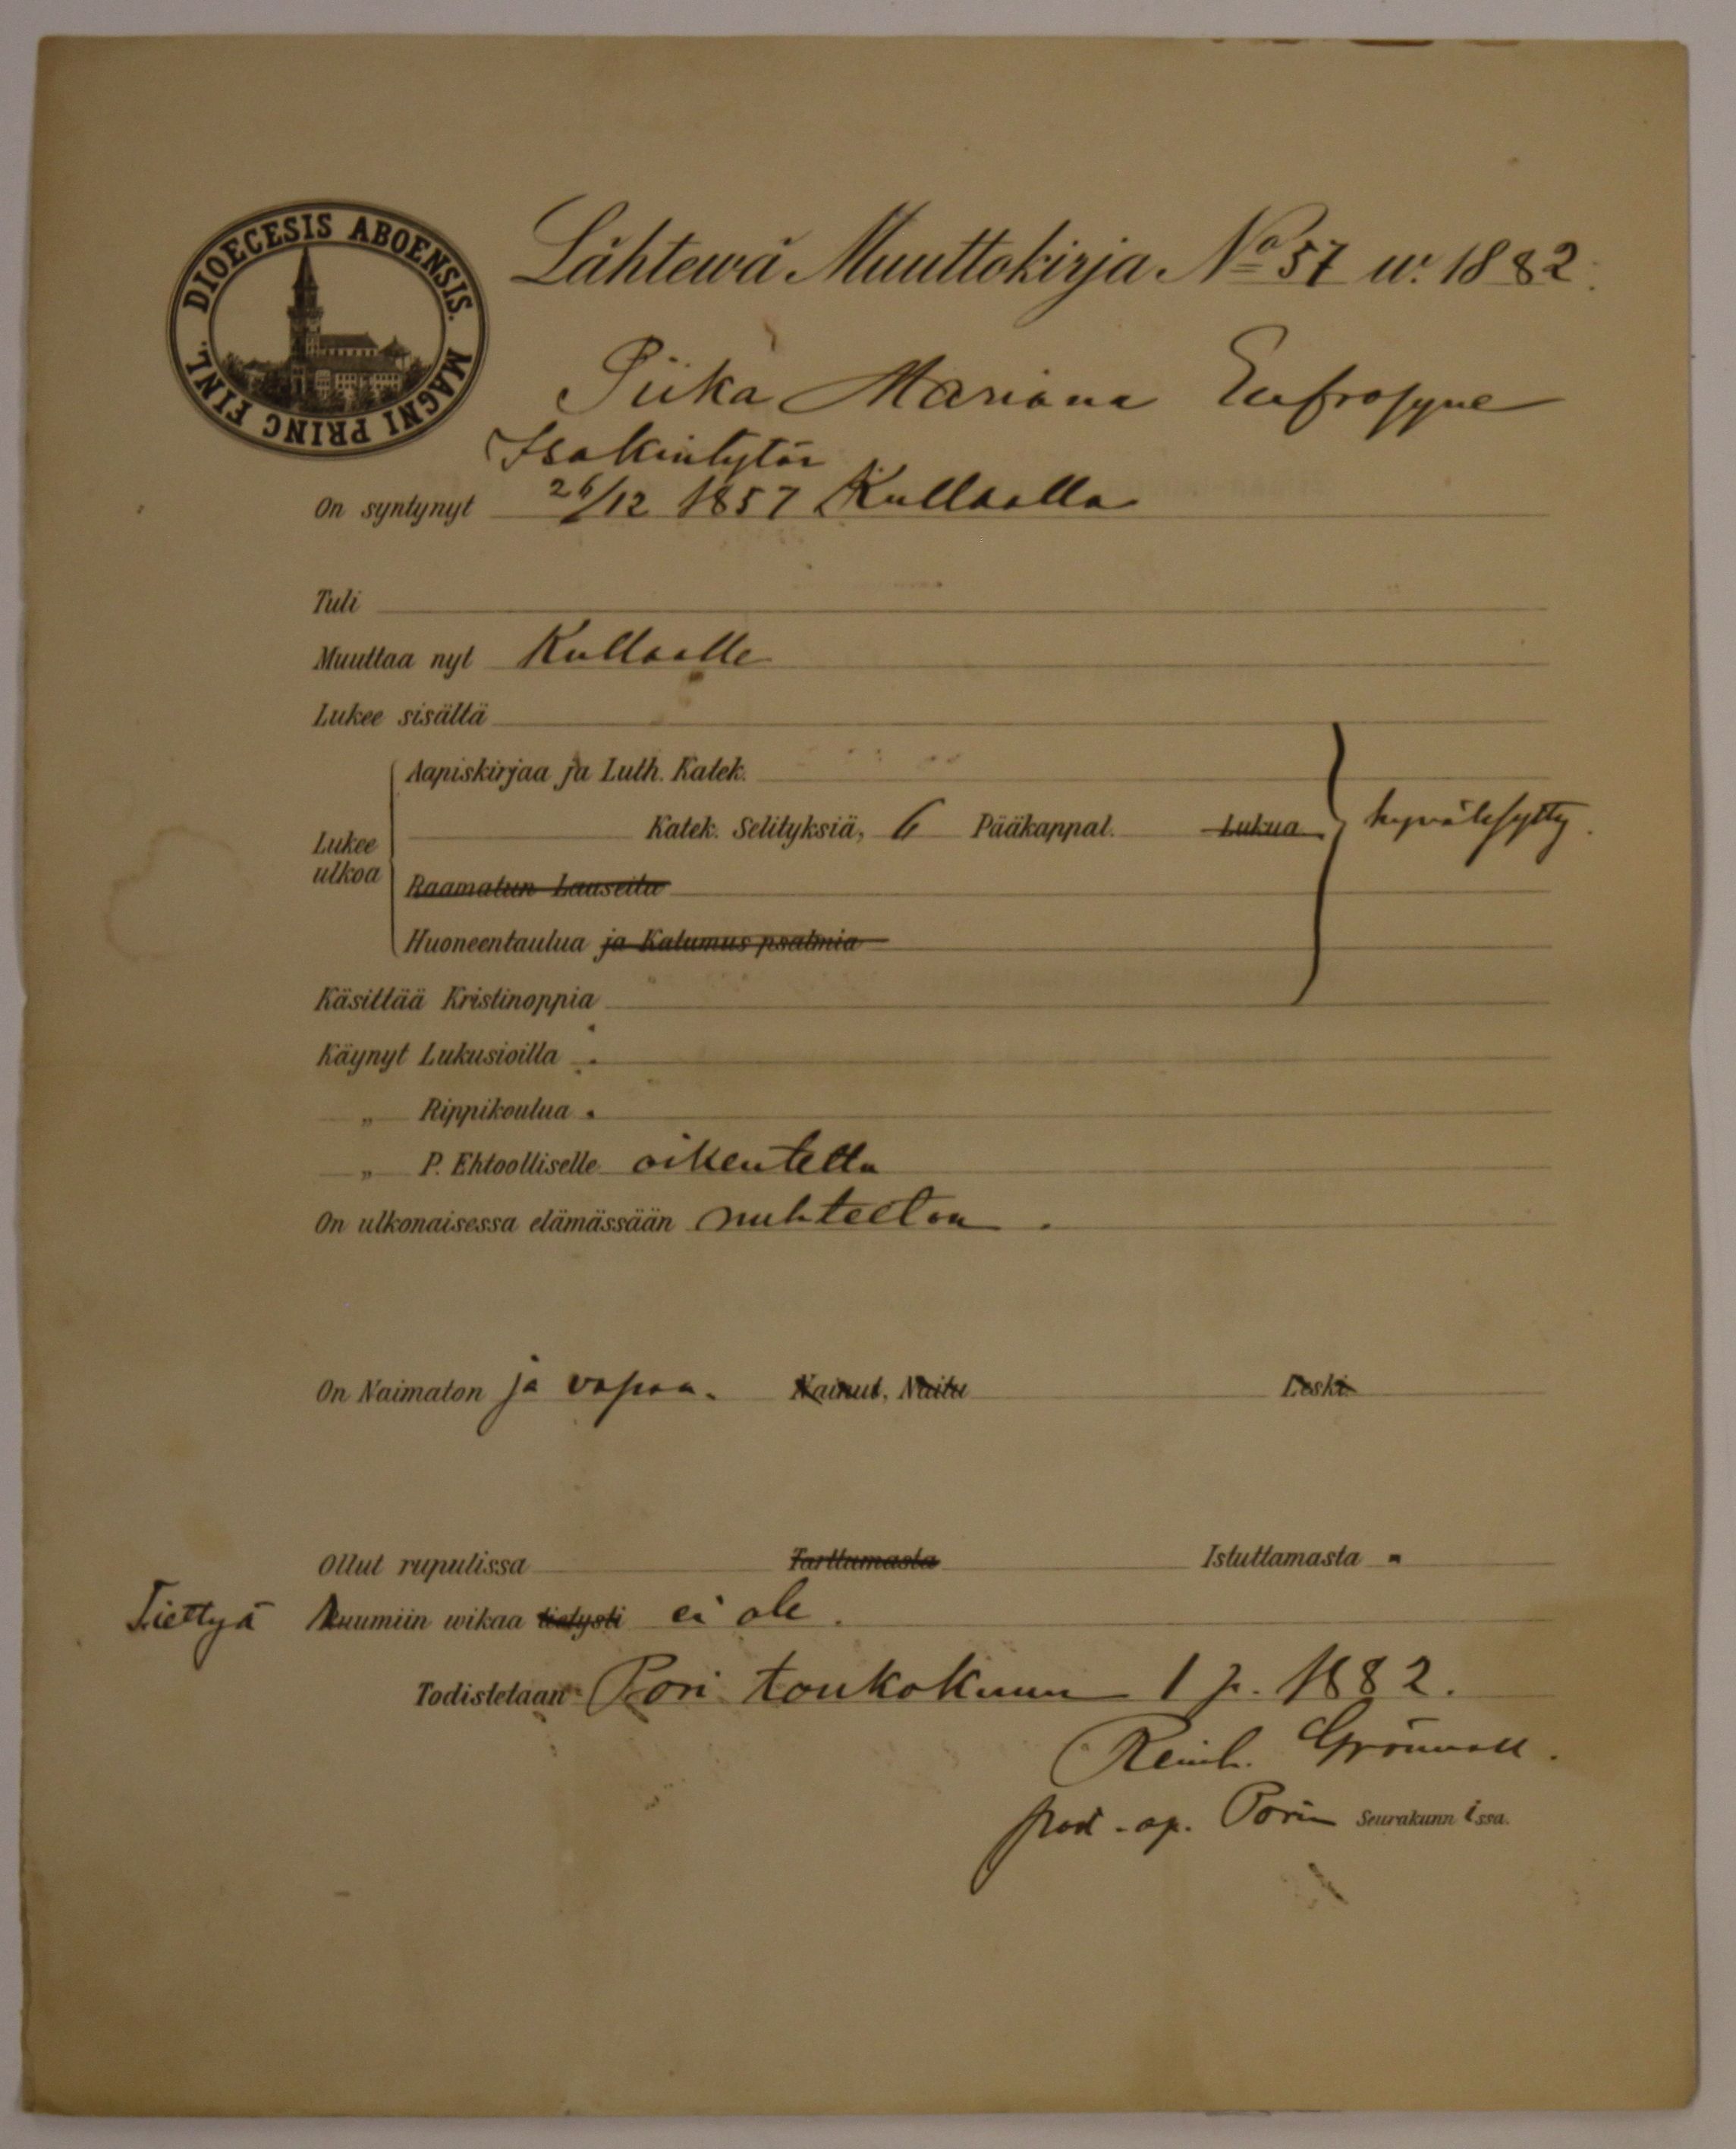 DIOECESIS ABOENSIS. MAGNI PRINC FINL.
Lähtewä Muuttokirja No 57 w. 1882.
Piika Mariana Eufrosyne
Isakintytär
On syntynyt 26/12 1857 Kullaalla
Tuli
Muuttaa nyt Kullaalle
Lukee sisältä
Aapiskirjaa ja Luth. Katek.
Lukee ulkoa
Katek. Selityksiä, 6 Pääkappal. Lukua hyväksytty.
Raamatun Lauseita
Huoneentaulua ja Katumus psalmia
Käsittää Kristinoppia
Käynyt Lukusioilla
„ Rippikoulua
„ P. Ehtoolliselle oikeutettu
On ulkonaisessa elämässään nuhteeton.
On Naimaton ja vapaa. Nainut, Naitu Leski
Ollut rupulissa Tarttumasta Istuttamasta "
Tiettyä Ruumiin wikaa tietysti ei ole.
Todistetaan Pori toukokuun 1 p. 1882.
Reinh. Grönvall.
past. ap. Porin Seurakunnissa.